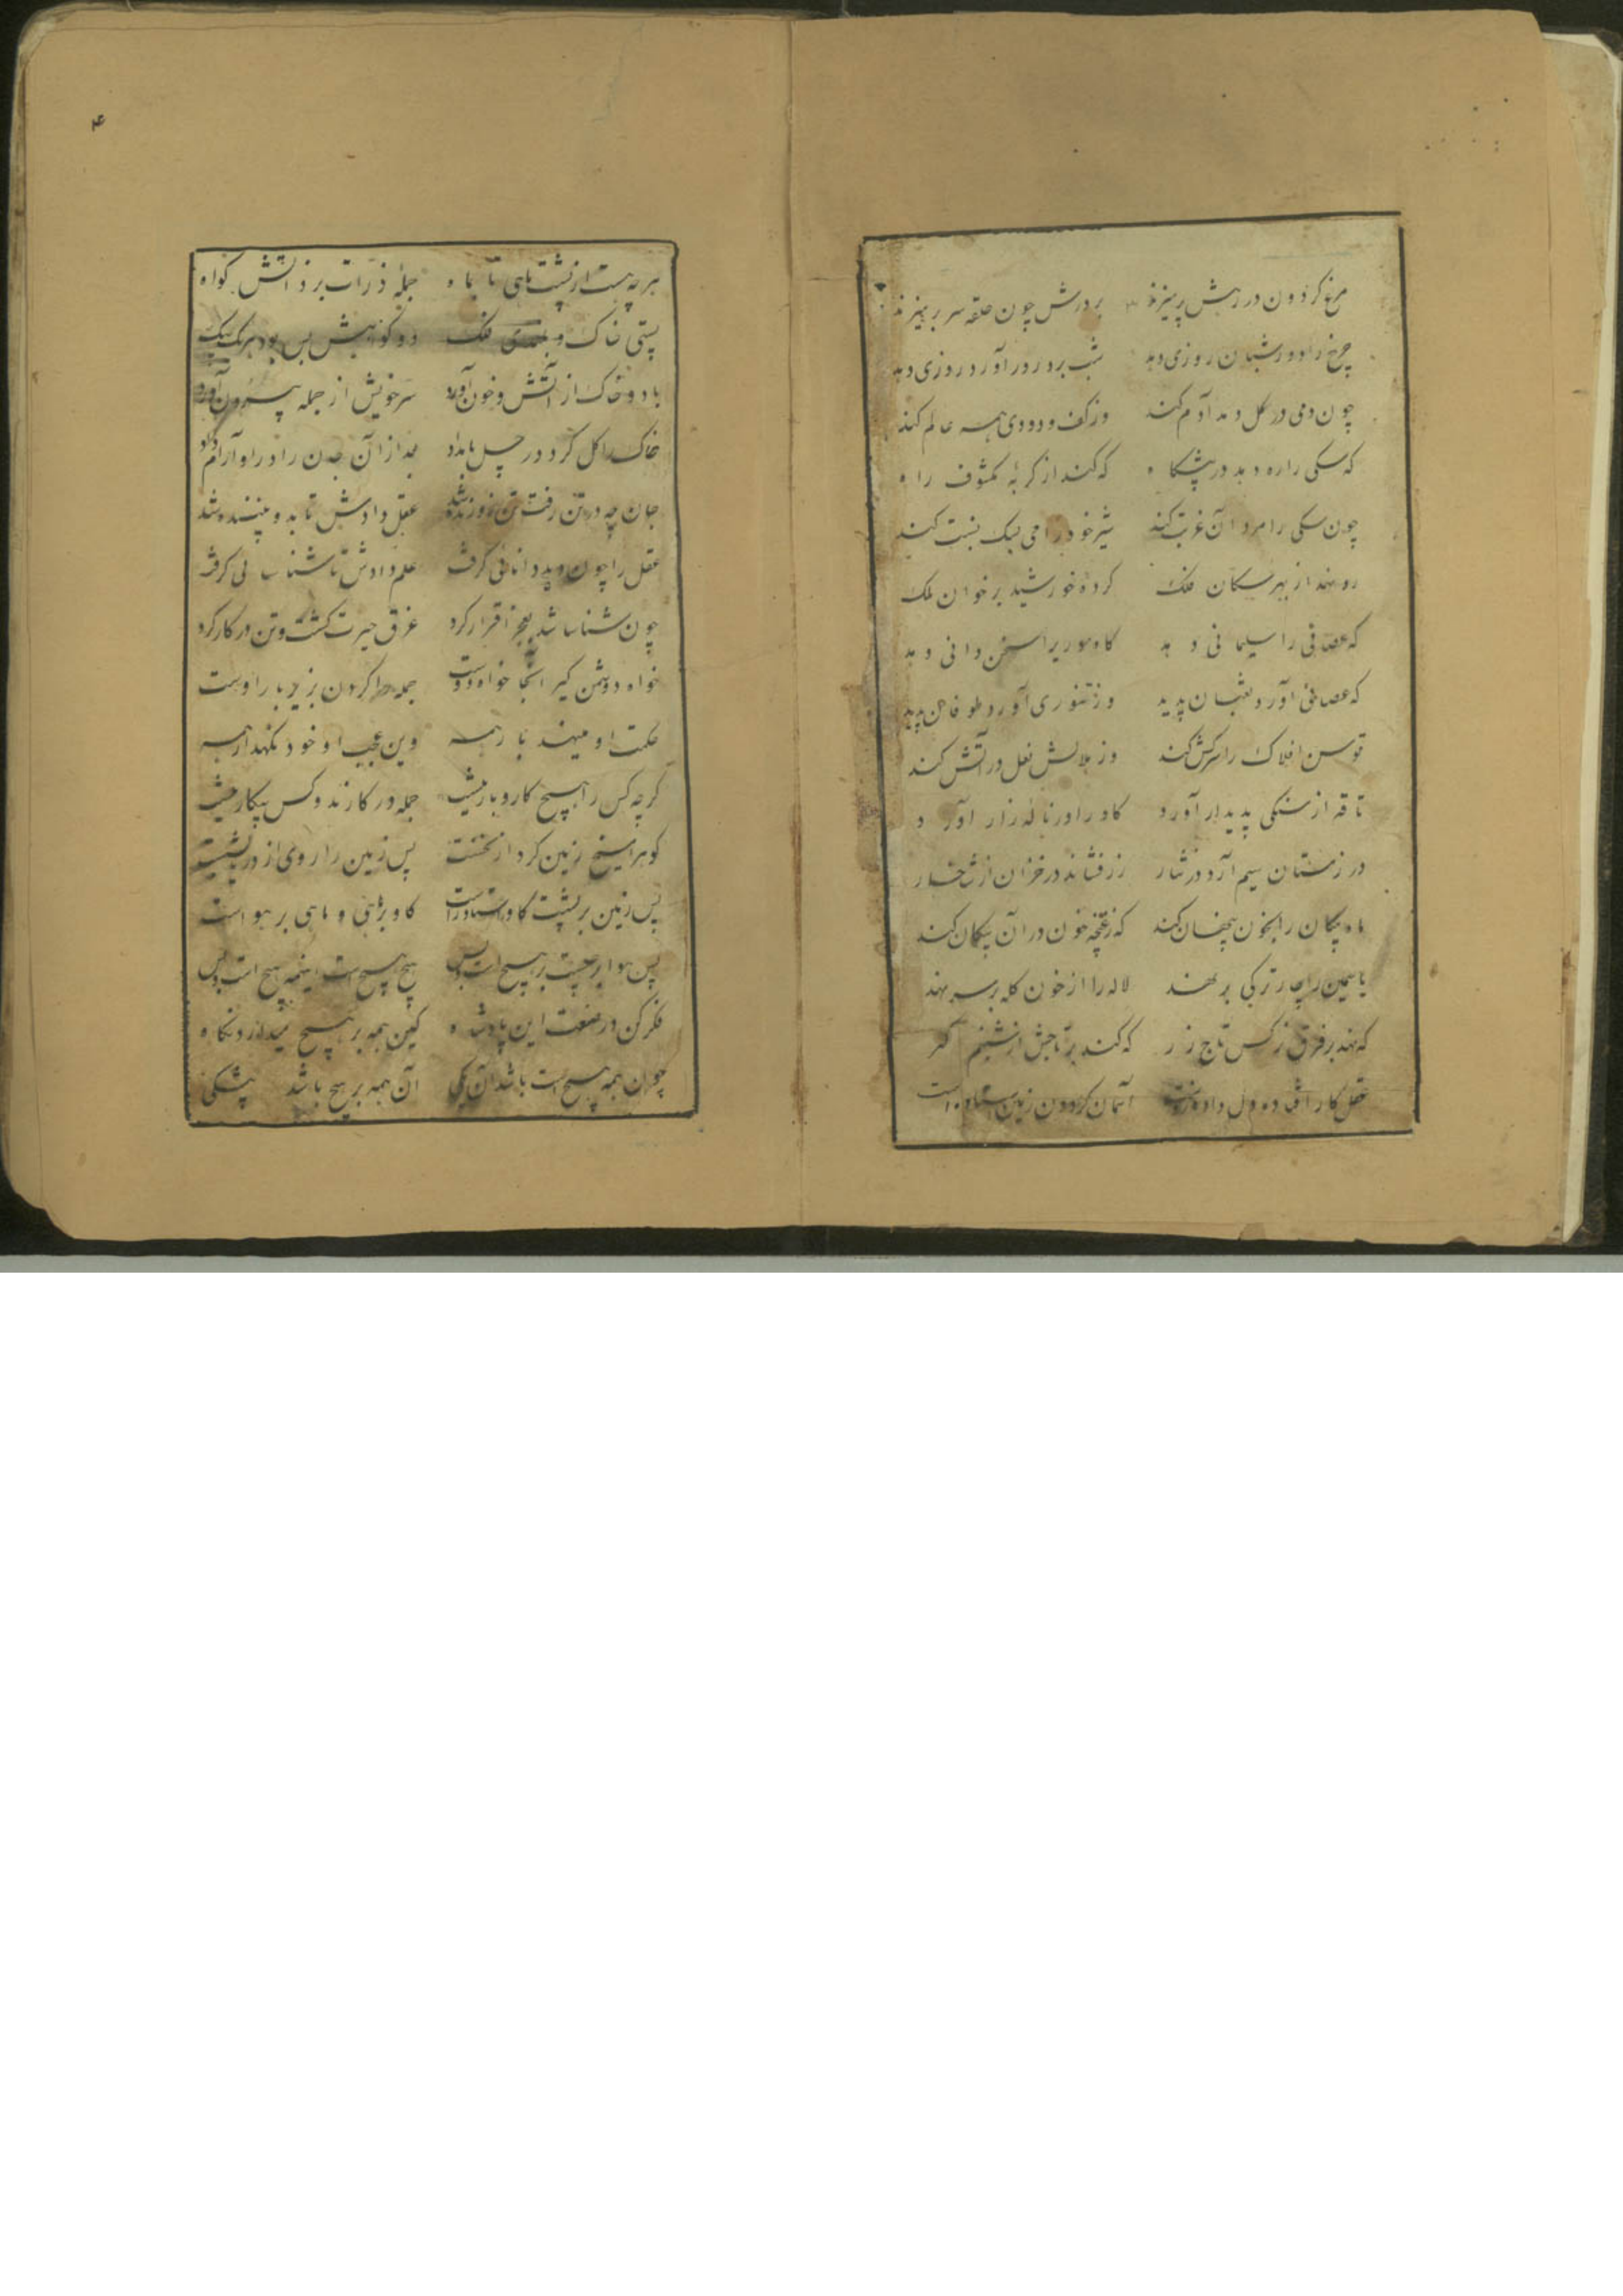 مرغ کردون در رهش پر میزند بر درش چون حلقه سر بر میزند
چرخ را دور شبان روزی دهد شب برد روز آورد روزی دهد
چون دمی در کل دمد آدم کند وز کف و دودی همه عالم کند
که سکی را ره دهد در پیشکاه که کند از کربهٔ مکشوف راه
چون سکی را مرد آن قربت کند شیر خود را می بسک نسبت کند
رو نهد از بهر سکان فلک کرده خورشید بر خوان فلک
که عصائی را سلیمانی دهد کاه موریرا سخن دانی دهد
که عصائی آورد ثعبان پدید وز تنوری آورد طوفان پدید
توسن افلاک را سرکش کند وز هلالش نعل در آتش کند
ناقه از سنکی پدیدار آورد کاو را در ناله زار آورد
در زمستان سیم آرد در نثار زر فشاند در خزان از شاخسار
ماه پیکان را بخون پنهان کند که ز غنچه خون در آن پیکان کند
یاسمین را چار ترکی بر نهد لاله را از خون کله بر سر نهد
که نهد بر فرق نرکس تاج زر که کند بر تاجش از شبنم کهر
عقل کار افتاده دل داده زوست آسمان کردون زمین استاده است
۴
هر چه هست از پشت ماهی تا بماه جمله ذرات بر ذاتش کواه
پستی خاک و بلندی فلک دو کواهش بس بود بر یک بیک
باد و خاک از آتش و خون آورد سر خویش از جمله بیرون آورد
خاک را کل کرد در چل بامداد بعد از آن جان را در او آرام داد
جان چه در تن رفت تن زو زنده شد عقل دادش تا بدو بیننده شد
عقل را چون دید دانائی کرفت علم دادش تا شناسائی کرفت
چون شناسا شد بعجز اقرار کرد غرق حیرت کشت و تن در کار کرد
خواه دشمن کیر اینجا خواه دوست جمله را کردن بزیر بار اوست
حکمت او مینهد بار همه وین عجب او خود نکهدار همه
کرچه کس را هیچ کار و بار نیست جمله در کارند و کس بیکار نیست
کوه را میخ زمین کرد از نخست پس زمین را روی از دریا بشست
پس زمین بر پشت کاو استاد راست کاو بر ماهی و ماهی بر هواست
پس هوا بر چیست بر هیچ است و بس هیچ هیچ است اینهمه هیچ است و بس
فکر کن در صنعت این پادشاه کین همه بر هیچ میدارد نکاه
چون همه هیچ است باشد آن یکی آن همه بر هیچ باشد بیشکی